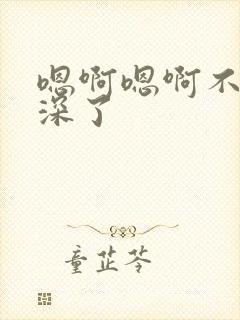 嗯啊嗯啊不
深了
童芷苓